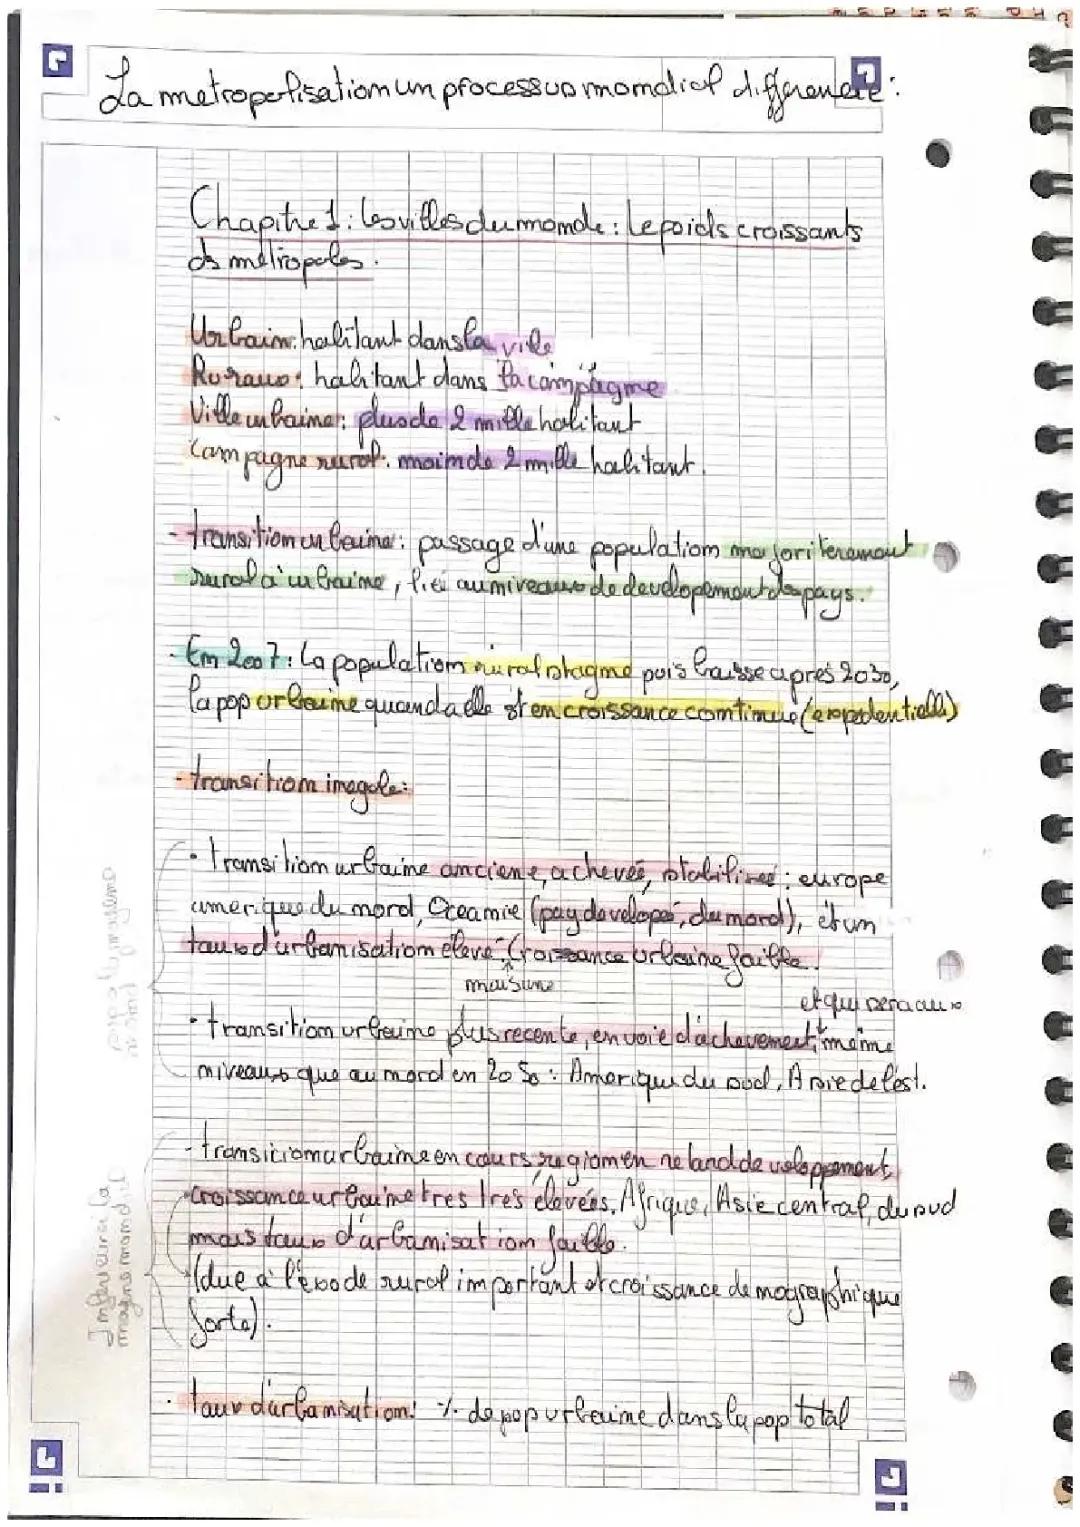 La metropolisation un processus mondial différencié :
Chapitre 1 : les villes du monde : le poids croissants
ds métropoles.
Urbain : habitant dans la ville
Ruraux : habitant dans la campagne
Ville urbaine : plus de 2 mille habitant
Campagne rural : moin de 2 mille habitant.
- transition urbaine : passage d'une population majoriterement
rural à urbaine, lié au niveaux de developement des pays.
- En 2007 : la population rural stagne puis baisse apres 2030,
la pop urbaine quand a elle est en croissance continue (expedentielle)
- transition inegale :
· Transition urbaine anciene, achevée, stabilisée : europe
amerique du nord, Oceanie (pay developé, du nord), et un
taux d'urbanisation élevé, Croissance urbaine faible.
mais une
et qui sera aux
· transition urbaine plus recente, en voie d'achevement, même
niveaux que au nord en 2050 : Amerique du sud, Asie de l'est.
- transition urbaine en cours, region en retard de veloppement,
croissance urbaine tres tres élevées, Afrique, Asie central, du sud
mais taux d'urbanisation faible.
(due à l'exode rural important et croissance demographique
forte).
· taux d'urbanisation : % de pop urbaine dans la pop total